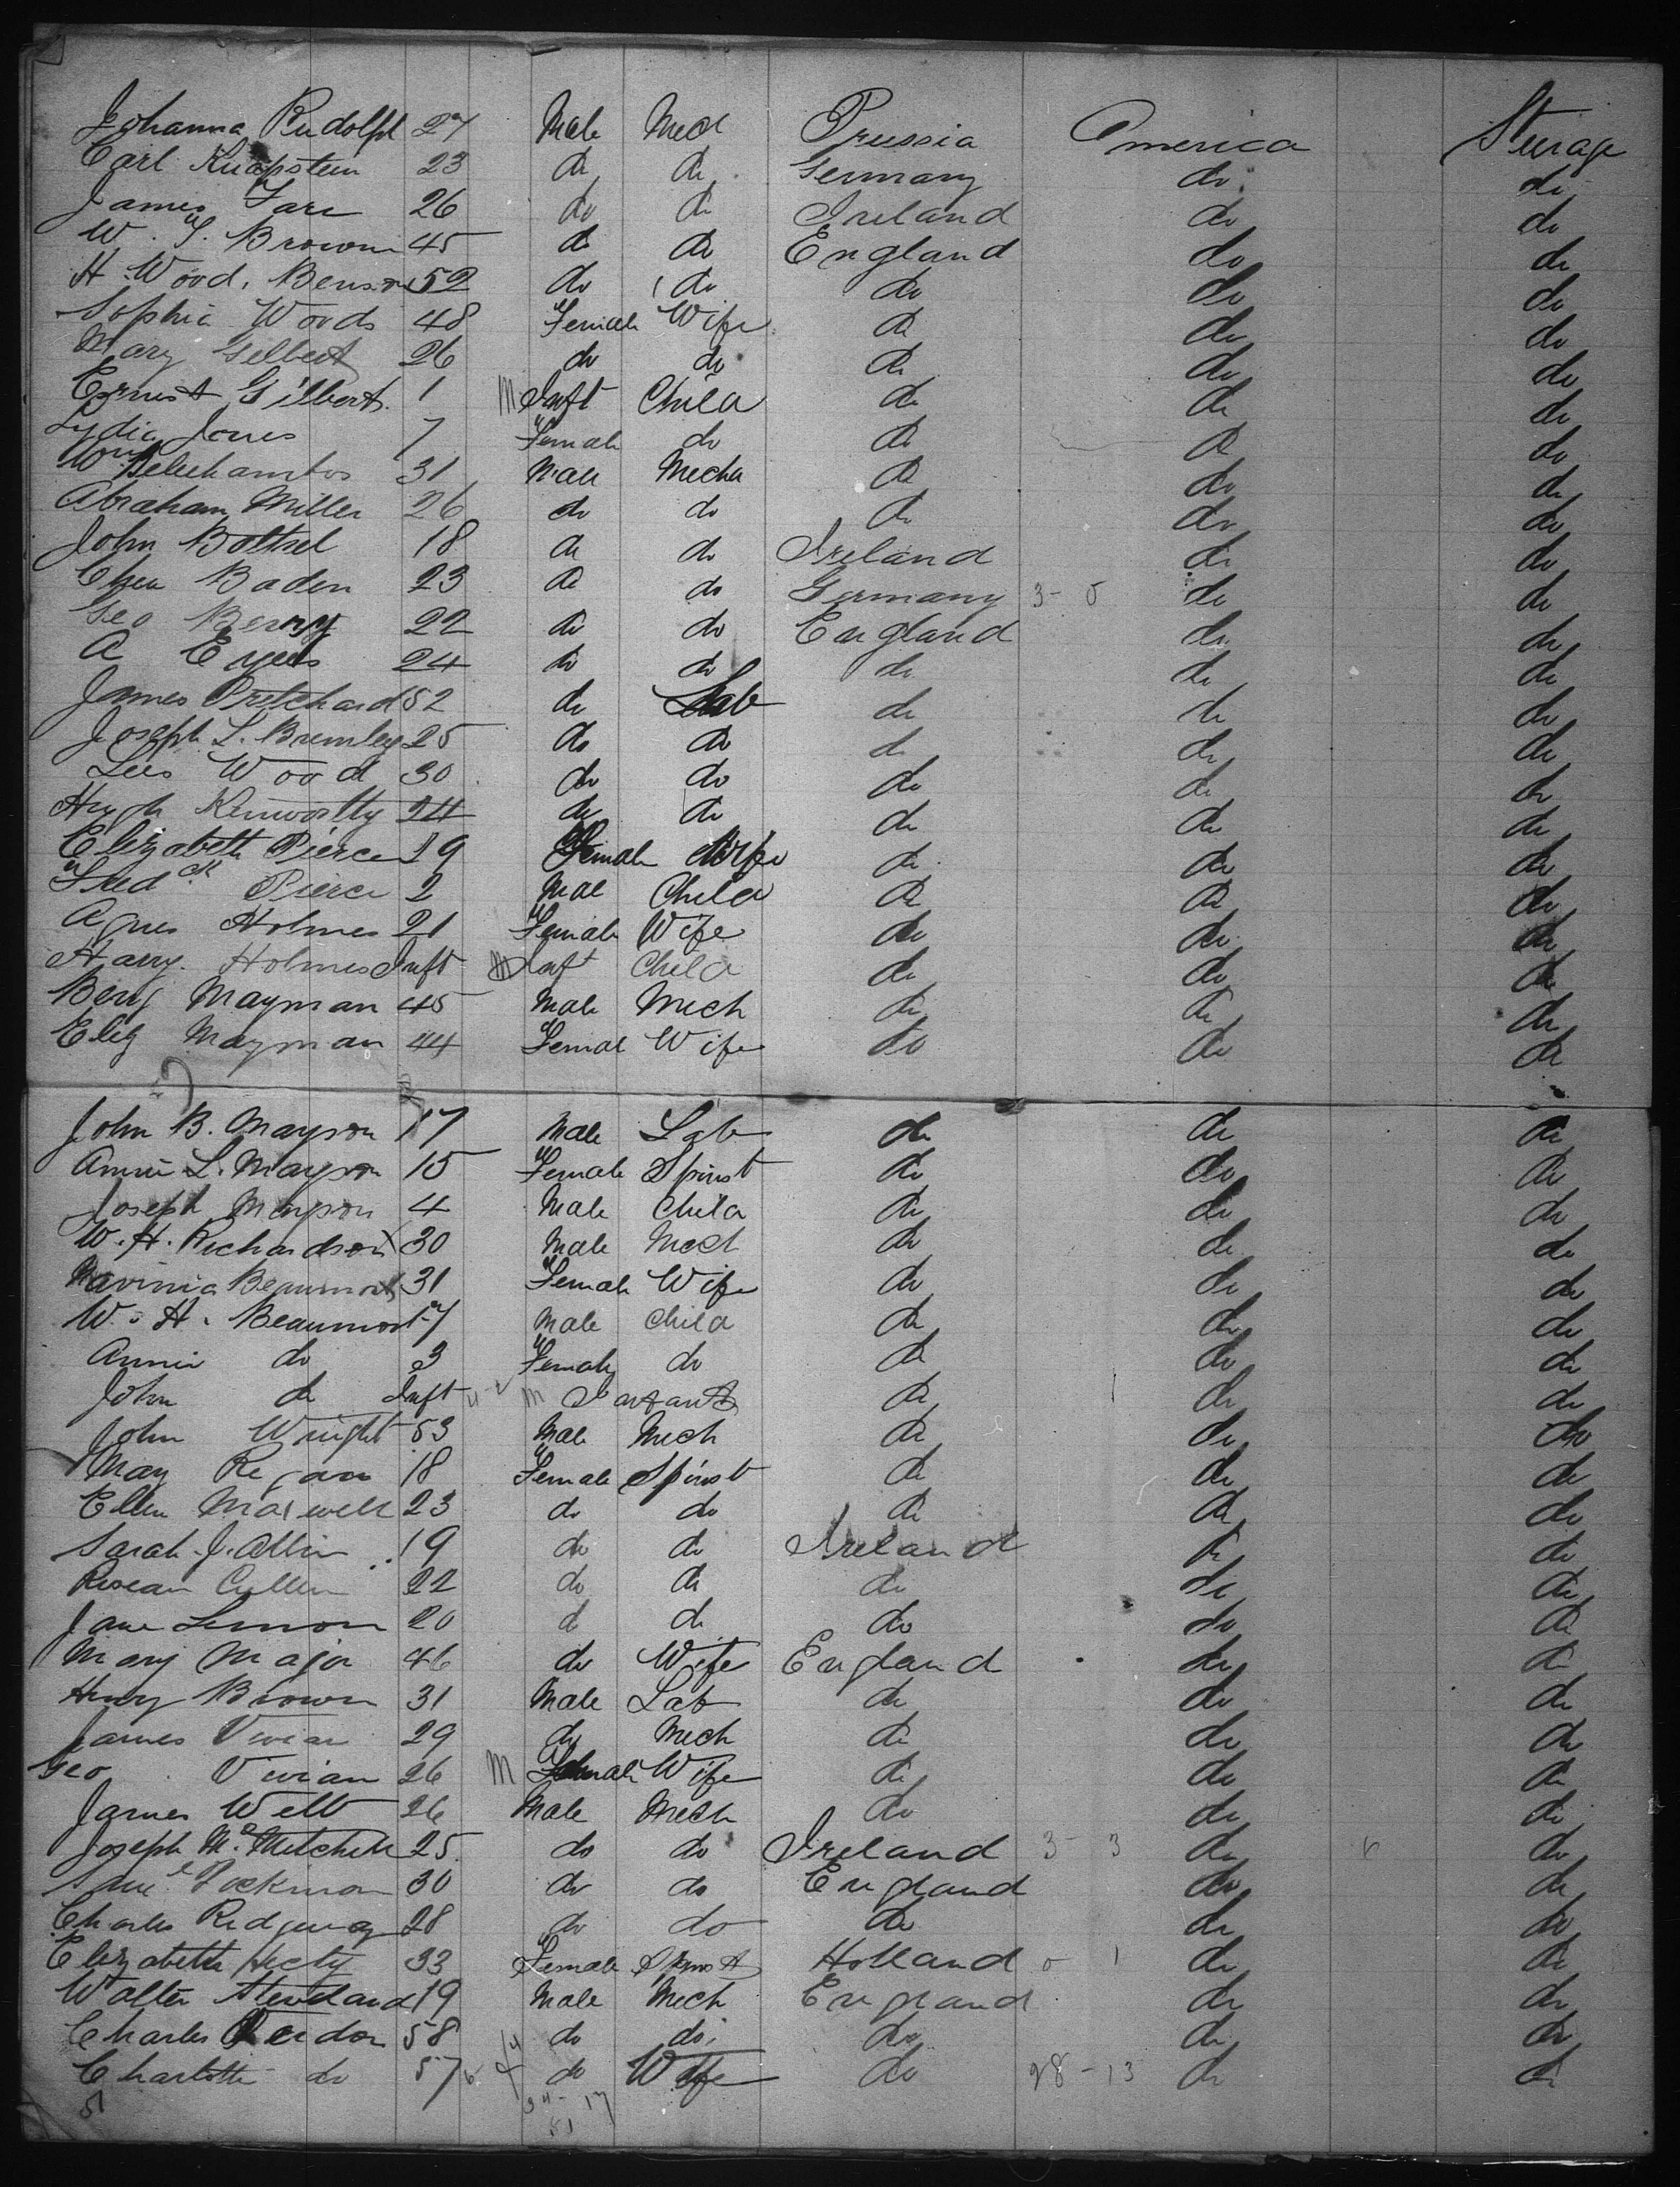 Johanna Rudolph 27 Male Mech Prussia America Steerage
Carl Knapstein 23 do do Germany do do
James Farr 26 do do Ireland do do
W. T. Brown 45 do do England do do
H. Wood, Benson 52 do do do do do
Sophia Woods 48 Female Wife do do do
Mary Gilbert 26 do do do do do
Ernest Gilbert 1 M Inft Child do do do
Lydia Jones 7 Female do do do do
Wm 31 Male Mecha do do do
Abraham Miller 26 do do do do do
John Bothel 18 do do Ireland do do
Chen Baden 23 do do Germany 3-0 do do
Geo Berry 22 do do England do do
A 24 do do do do do
James Pritchard 52 do Lab do do do
Joseph L. Brumley 25 do do do do do
Lees Wood 30 do do do do do
Hugh Kenworthy 24 do do do do do
Elizabeth Pierce 29 Female Wife do do do
Fredck Pierce 2 Male Child do do do
Agnes Holmes 21 Female Wife do do do
Harry Holmes Inft M Inft Child do do do
Benj Mayman 45 Male Mech do do do
Eliz Mayman 44 Female Wife do do do
John B. Mayson 17 Male Lab do do do
Annie L. Mayson 15 Female Spinst do do do
Joseph Mayson 4 Male Child do do do
W. H. Richardson 30 Male Mech do do do
Beaumont 31 Female Wife do do do
W. H. Beaumont 7 Male Child do do do
Annie do 3 Female do do do do
John do Inft M Infant do do do
John Wright 53 Male Mech do do do
May Regan 18 Female Spinst do do do
Ellen Maxwell 23 do do do do do
Sarah J. Allin 19 do do Ireland do do
Rosean Cullen 22 do do do do do
Jane Lemon 20 d do do do do
Mary Major 46 do Wife England do do
Henry Brown 31 Male Lab do do do
James Vivian 29 do Mech do do do
Geo Vivian 26 M Female Wife do do do
James Will 26 Male Mech do do do
Joseph Mc Mitchell 25 do do Ireland 3-3 do do
Saml 30 do do England do do
Charles Ridgeway 28 do do do do do
Elizabeth 33 Female Spinst Holland 0 1 do do
Walter Stoddard 19 Male Mech England do do
Charles 58 do do do do do
Charlotte do 57 do Wife do 28-13 do do
51 34-17
51